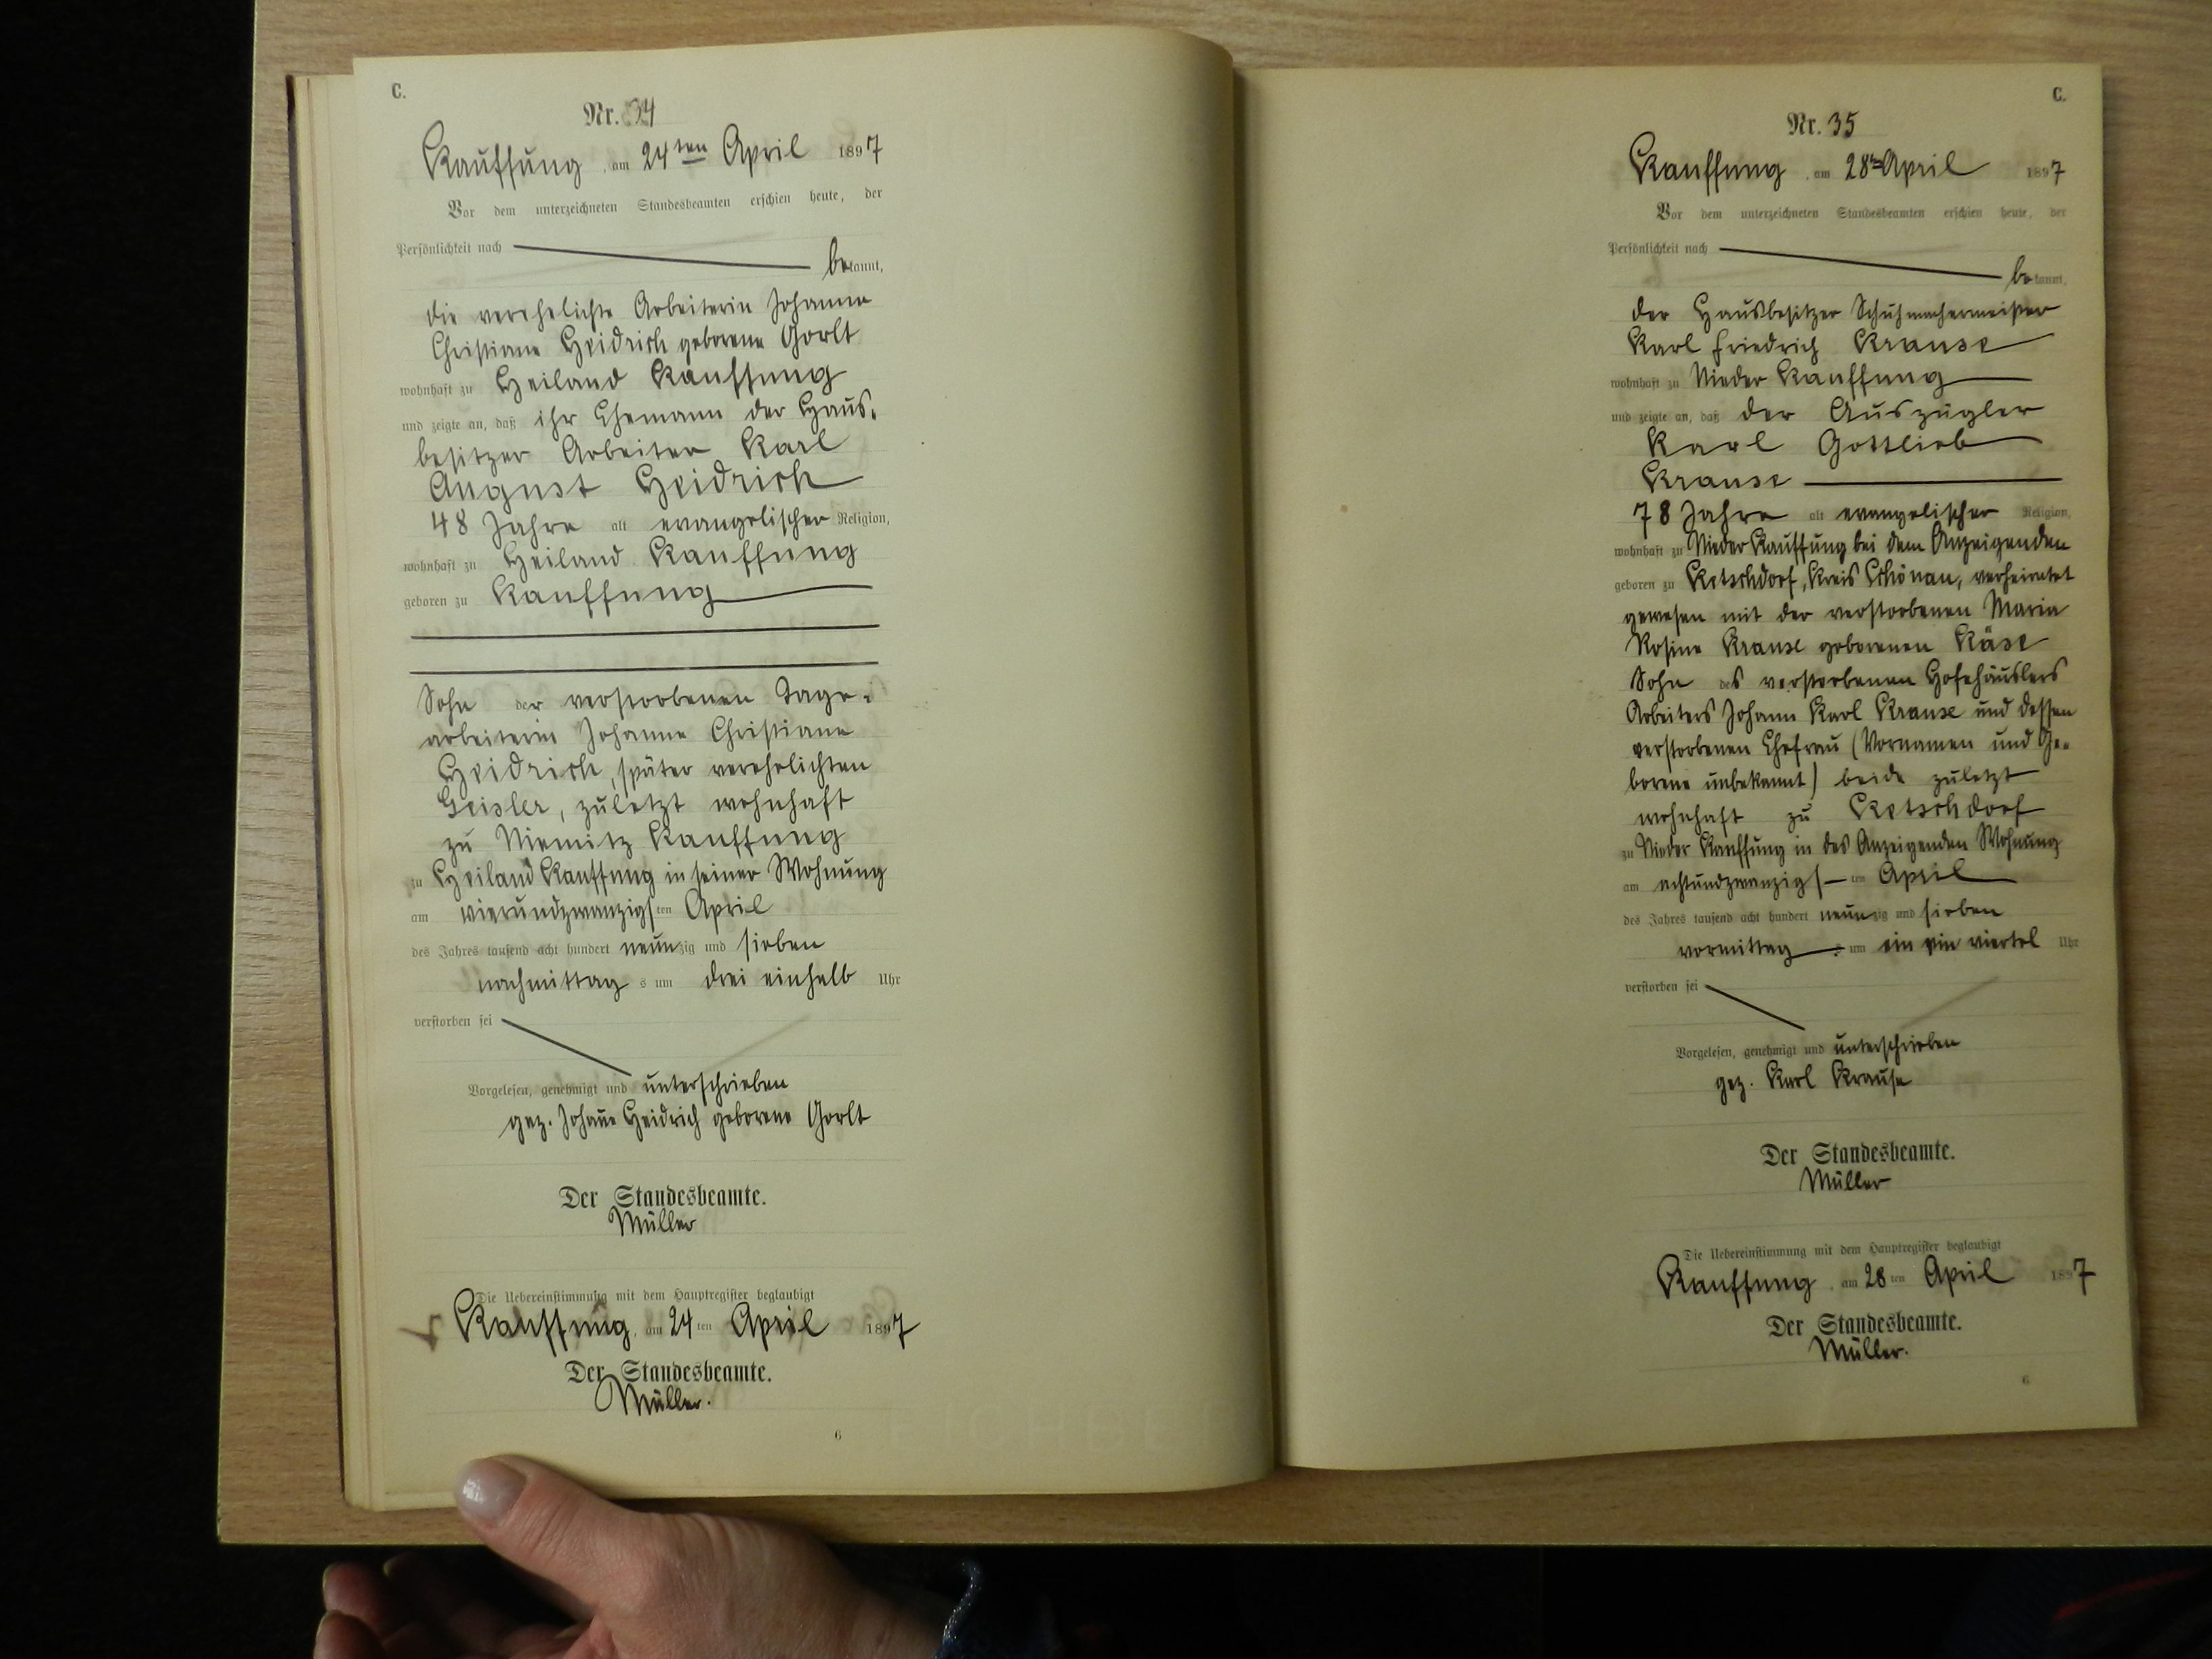 C.
Nr. 34
Kauffung, am 24ten April 1897
Vor dem unterzeichneten Standesbeamten erschien heute, der
Persönlichkeit nach
bekannt,
die verehelichte Arbeiterin Johanne
Christiane Heidrich geborene Gorlt
wohnhaft zu Heiland Kauffung
und zeigte an, daß ihr Ehemann der Haus-
besitzer Arbeiter Karl
August Heidrich
48 Jahre alt evangelischer Religion,
wohnhaft zu Heiland Kauffung
geboren zu Kauffung
Sohn der verstorbenen Tage-
arbeiterin Johanne Christiane
Heidrich, später verehelichten
Geisler, zuletzt wohnhaft
zu Niemitz Kauffung
zu Heiland Kauffung in seiner Wohnung
am vierundzwanzigsten April
des Jahres tausend acht hundert neunzig und sieben
nachmittags um drei einhalb Uhr
verstorben sei
Vorgelesen, genehmigt und unterschrieben
gez. Johañe Heidrich geborene Gorlt
Der Standesbeamte.
Müller
Die Uebereinstimmung mit dem Hauptregister beglaubigt
Kauffung, am 24ten April 1897
Der Standesbeamte.
Müller.
6
C.
Nr. 35
Kauffung, am 28ten April 1897
Vor dem unterzeichneten Standesbeamten erschien heute, der
Persönlichkeit nach
bekannt,
der Hausbesitzer Schuhmachermeister
Karl Friedrich Krause
wohnhaft zu Nieder Kauffung
und zeigte an, daß der Auszügler
Karl Gottlieb
Krause
78 Jahre alt evangelischer Religion,
wohnhaft zu Nieder Kauffung bei dem Anzeigenden
geboren zu Ketschdorf, Kreis Schönau, verheiratet
gewesen mit der verstorbenen Maria
Rosine Krause geborenen Käse
Sohn des verstorbenen Hofehäuslers
Arbeiters Johann Karl Krause und dessen
verstorbenen Ehefrau (Vornamen und Ge-
borene unbekannt) beide zuletzt
wohnhaft zu Ketschdorf
zu Nieder Kauffung in des Anzeigenden Wohnung
am achtundzwanzigsten April
des Jahres tausend acht hundert neunzig und sieben
vormittags um ein ein viertel Uhr
verstorben sei
Vorgelesen, genehmigt und unterschrieben
gez. Karl Krause
Der Standesbeamte.
Müller
Die Uebereinstimmung mit dem Hauptregister beglaubigt
Kauffung, am 28ten April 1897
Der Standesbeamte.
Müller.
6